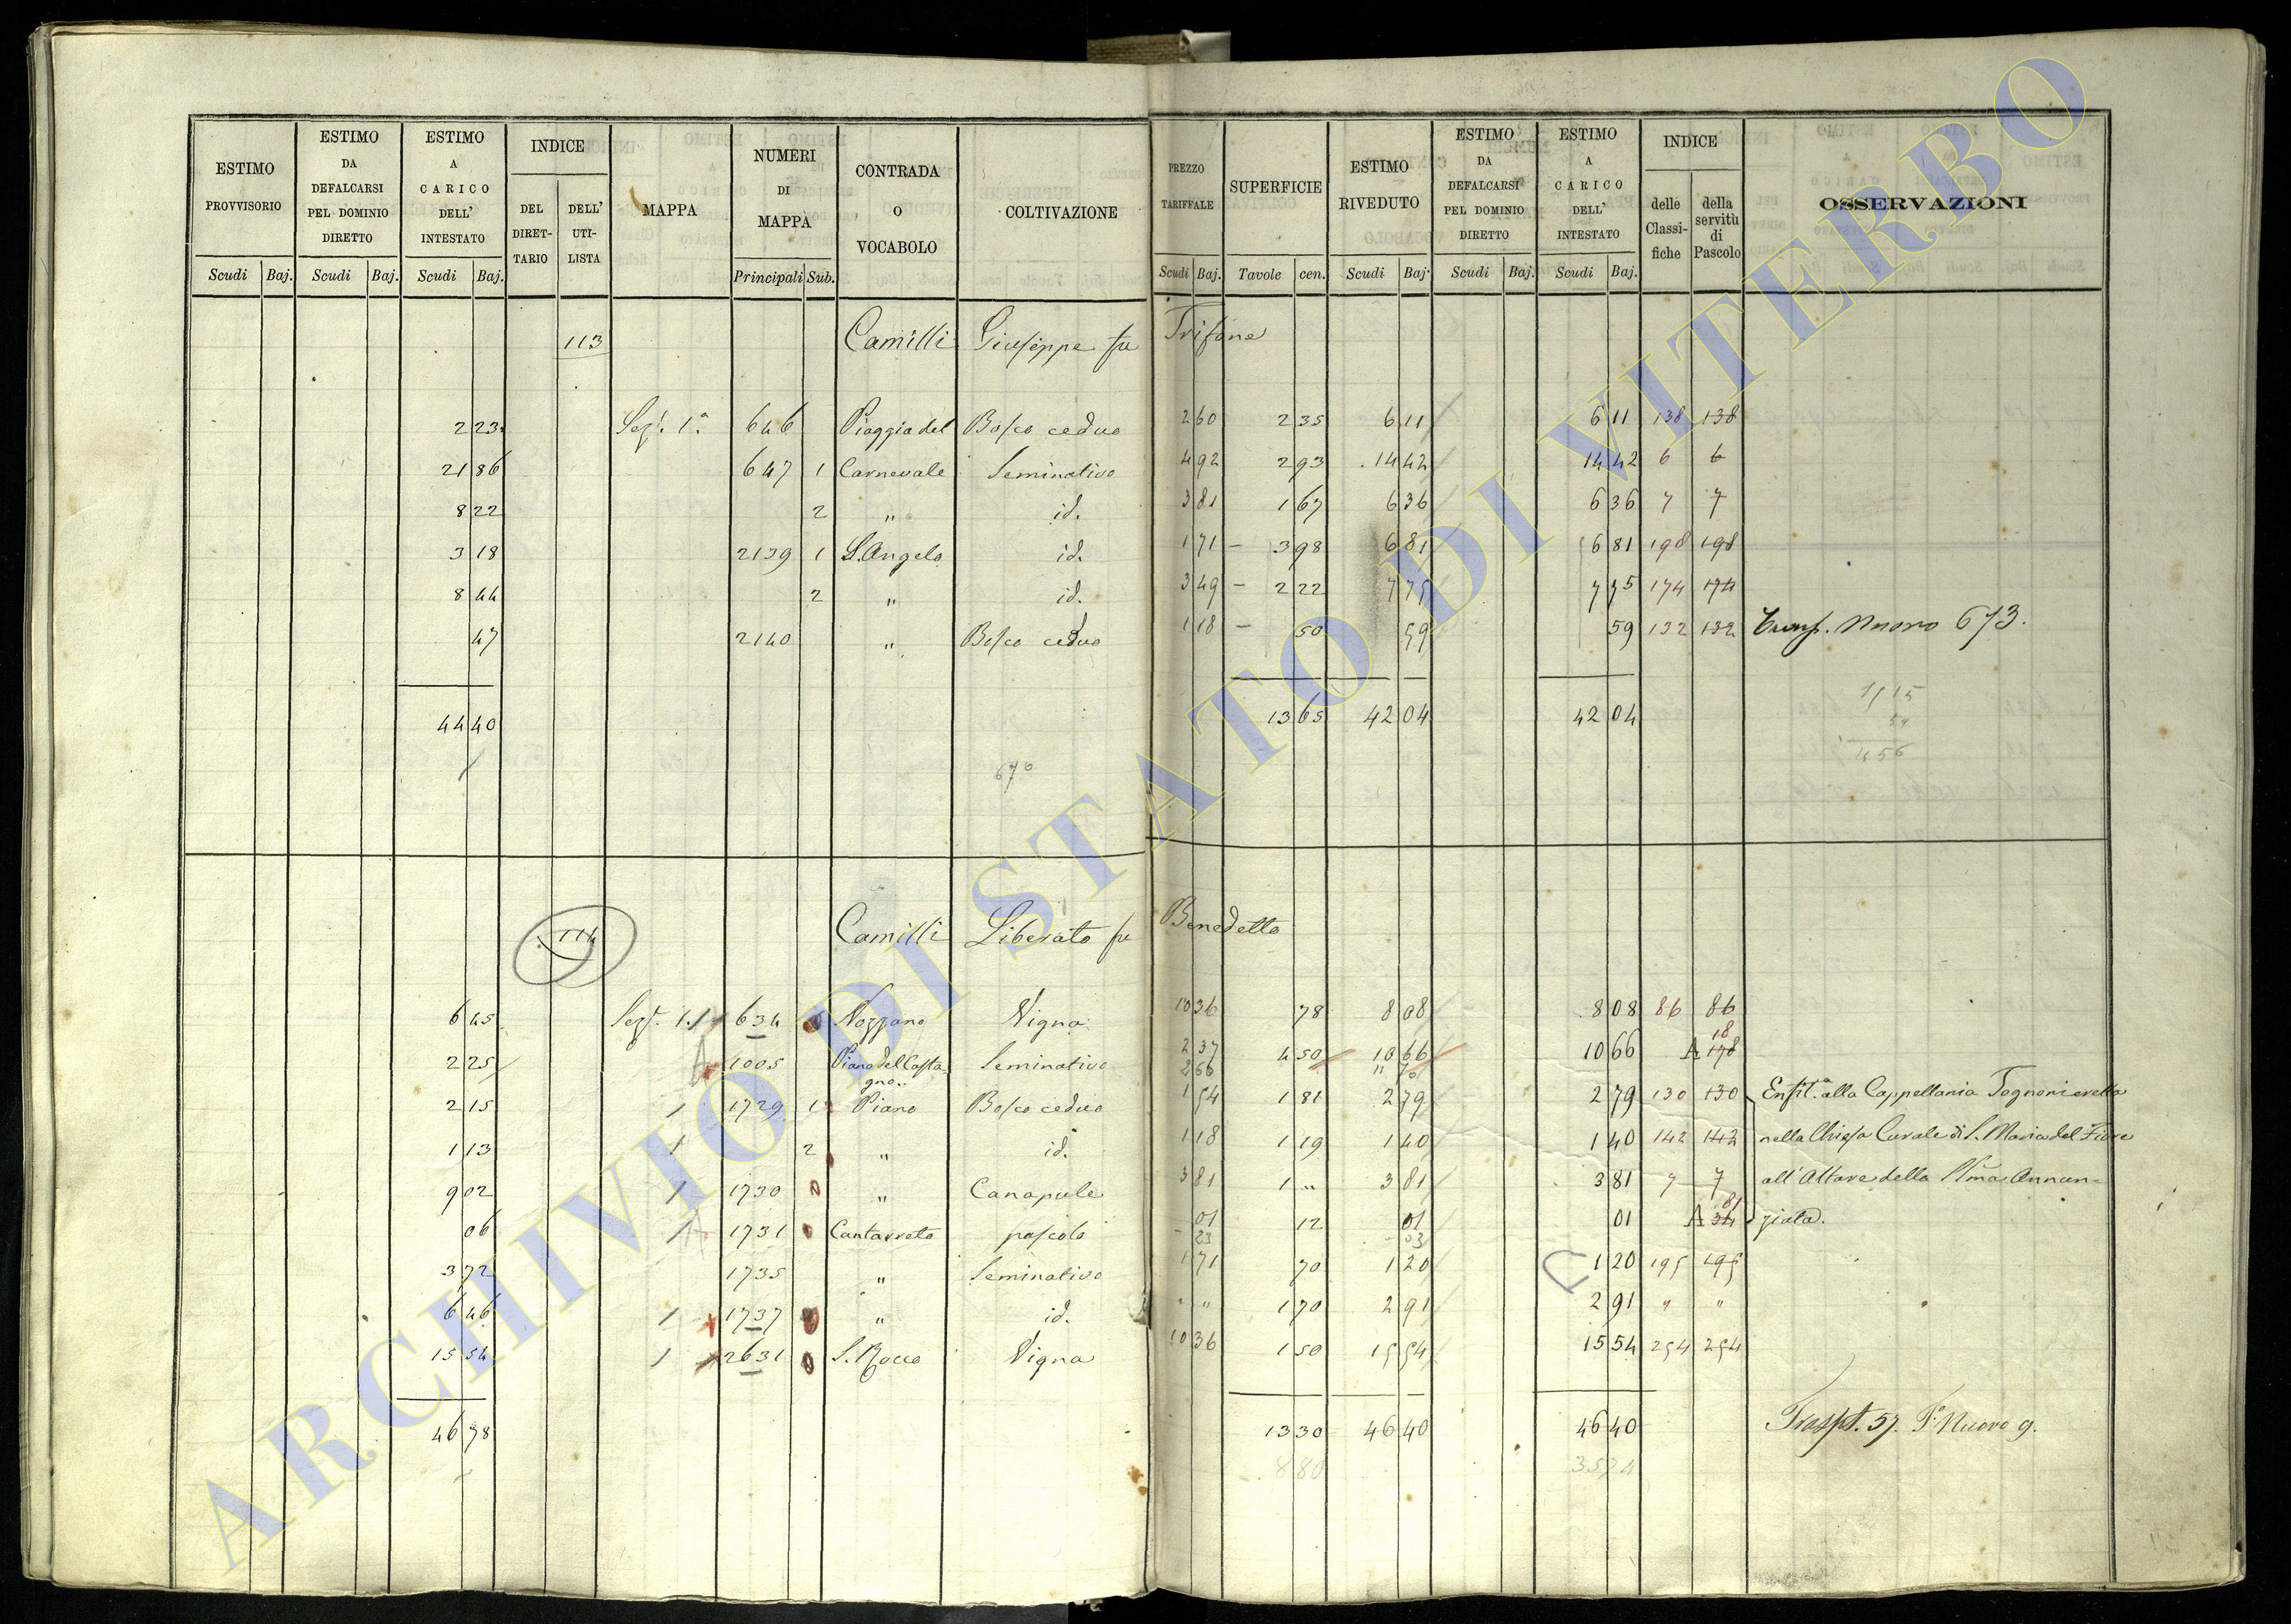 ESTIMO PROVVISORIO Scudi Baj.
ESTIMO DA DEFALCARSI PEL DOMINIO DIRETTO Scudi Baj.
ESTIMO A CARICO DELL' INTESTATO Scudi Baj.
INDICE DEL DIRETTARIO DELL' UTILISTA
MAPPA
NUMERI DI MAPPA Principali Sub.
CONTRADA O VOCABOLO
COLTIVAZIONE
PREZZO TARIFFALE Scudi Baj.
SUPERFICIE Tavole cen.
ESTIMO RIVEDUTO Scudi Baj.
ESTIMO DA DEFALCARSI PEL DOMINIO DIRETTO Scudi Baj.
ESTIMO A CARICO DELL' INTESTATO Scudi Baj.
INDICE delle Classifiche della servitù di Pascolo
OSSERVAZIONI
113 Camilli Giuseppe fu Trifone
2 23 Sez. 1ª 646 Piaggia del Bosco ceduo 2 60 2 35 6 11 6 11 138 138
21 86 647 1 Carnevale Seminativo 4 92 2 93 14 42 14 42 6 6
8 22 2 " id. 3 81 1 67 6 36 6 36 7 7
3 18 2139 1 S. Angelo id. 1 71 3 98 6 81 6 81 198 198
8 44 2 " id. 3 49 2 22 7 75 7 75 174 174
47 2140 " Bosco ceduo 1 18 50 59 59 132 132 Trasp. Nuovo 673.
44 40 13 65 42 04 42 04
670
114 Camilli Liberato fu Benedetto
6 45 Sez. 1. 634 Nozzano Vigna 10 36 78 8 08 8 08 86 86
2 25 1005 Piano del Castagno Seminativo 2 37 4 50 10 66 10 66 A 178 18
2 66 " 70
2 15 1 1729 1 Piano Bosco ceduo 1 54 1 81 2 79 2 79 130 130 Enfit.ª alla Cappellania Tognoni eretta
1 13 1 2 " id. 1 18 1 19 1 40 1 40 142 142 nella Chiesa Curale di S. Maria del Fiore
9 02 1 1730 " Canapule 3 81 1 " 3 81 3 81 7 7 all'Altare della SSma Annun=
06 1 1731 Cantarreto pascolo 01 12 01 01 A 34 81 ziata.
23 03
3 72 1735 " Seminativo 1 71 70 1 20 1 20 195 195
6 46 1 1737 " id. " " 1 70 2 91 2 91 " "
15 54 1 2631 S. Rocco Vigna 10 36 1 50 15 54 15 54 254 254
46 78 13 30 46 40 46 40 Traspt. 57. P.º Nuovo 9.
8 80 35 74
ARCHIVIO DI STATO DI VITERBO